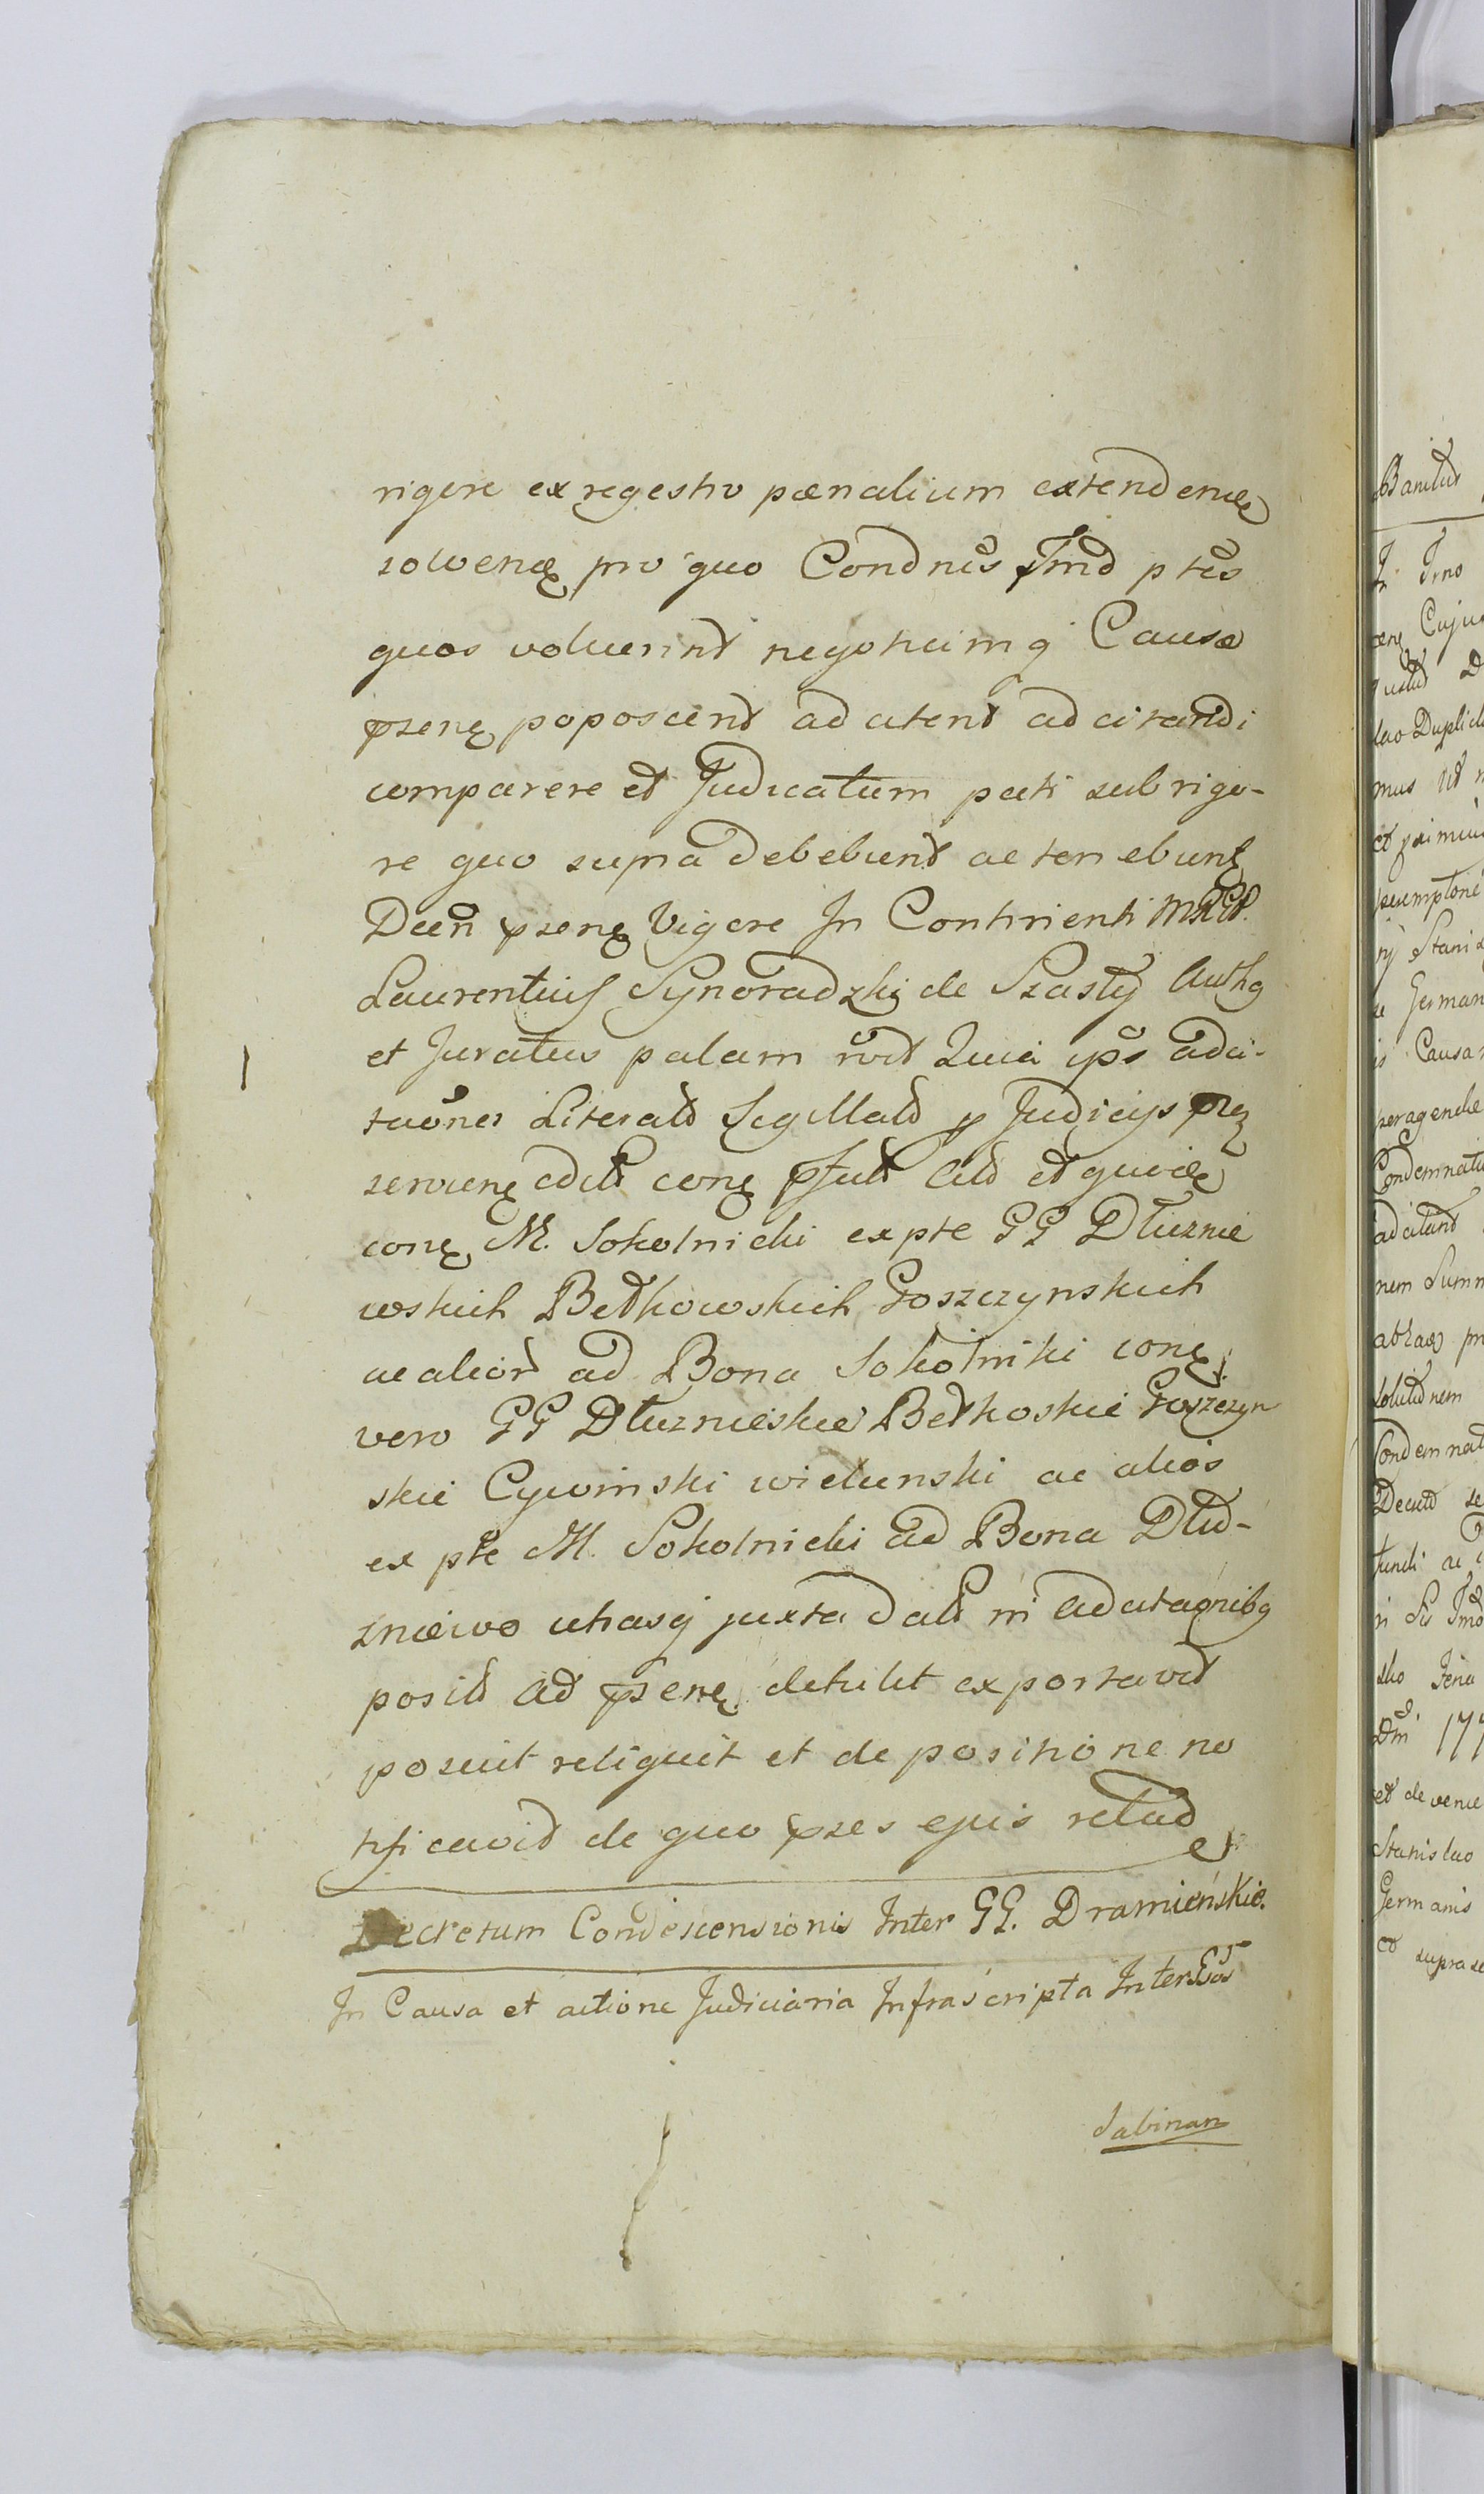 rigore ex regestro pœnalium extendenę
solvenę pro quo Condnĕs Tmd ptes
quos voluerint negotiumq Causæ
pseną poposcent ad citent adcitandi
comparere et Judicatum pati sub rigo-
re quo supra debebunt ac tenebunt
Decn psenę Vigore In Continenti
Laurentius Synoradzki de Szasty Authq
et Juratus palam rvit Quia ips adci-
tãones Literald Sigillald p Judicijs
serviene edit cone et quidę
cone M. Sokolnicki ex pte GG Dłuznie
wskich Bełkowskich Goszczynskich
ac alior ad Bona Sokolniki cone
vero GG Dłuznieskie Bełkoskie Goszczyn
skie Cywinski wielunski ac alios
ex pte M. Sokolnicki ad Bona Dłu-
zniewo utrasq juxta dat in adcitaonibq
posit ad psenę detulit exportavit
posuit reliquit et de positione no
tificavit de quo pses ejus relad
et
Decretum Condescensionis Inter GG. Dramieńskie.
In Causa et actione Judiciaria Infrascripta Inter Gsos
Sabinan
Banitus
In Trno
cenę Cujus
justus D
lao Duplicle
mus Ut n
et primus
psumptone
pij Stani
se German
is Causa
peragende
Condemnatu
adcitand
nem Summ
abras pr
solutdnem
Condemnat
Decutd se
fundi ac
n Sw Tmd
sko Feria
Dm 177
et devenie
Stanislao
Germanis
et supra se